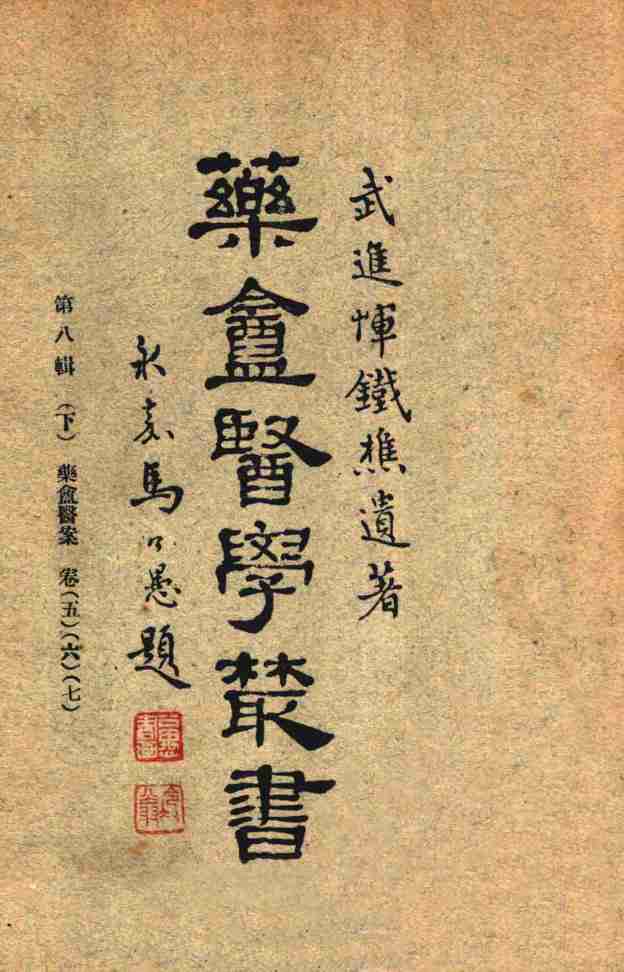 武進惲鐵樵遺著
藥盦醫學叢書
永嘉馬公愚題
第八輯（下） 藥盦醫案 卷（五）（六）（七）